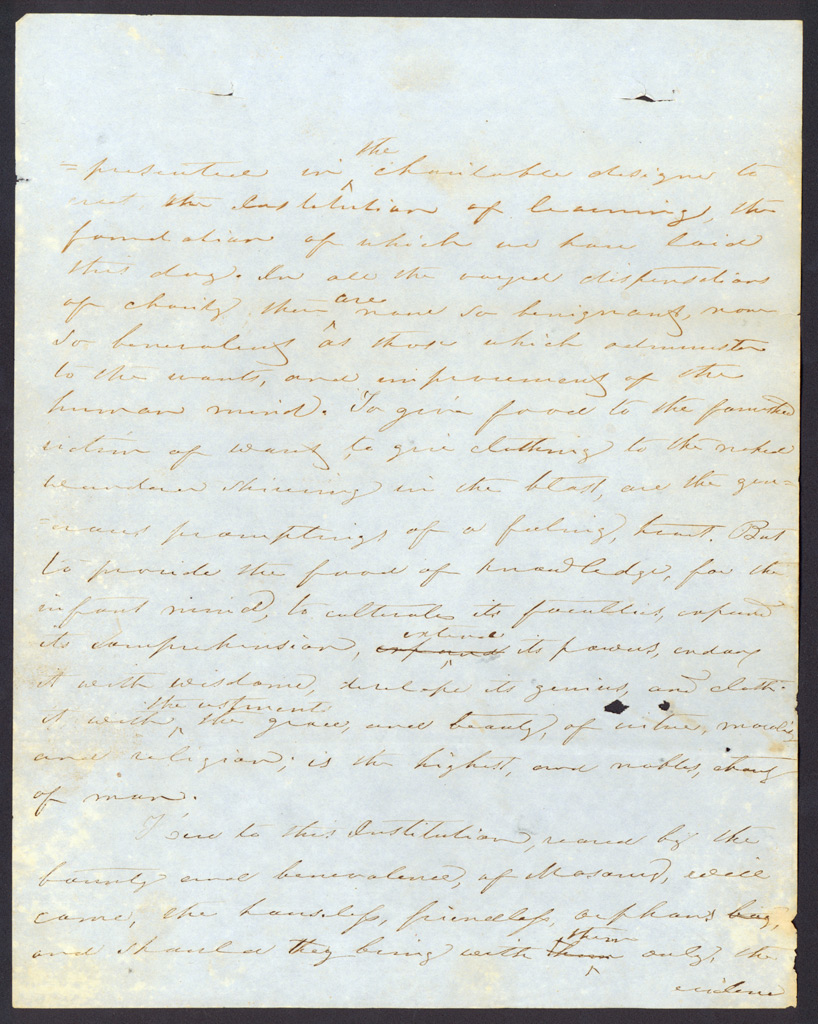 the
=presented in charitable designe to
erect the Institution of learning, the
foundation of which we have laid
this day. In all the varyed dispensations
are
of charity, there none so benignant, none
so benevolent as those which administer
to the wants, and improvement of the
human mind. To give food to the famished
victim of want, to give clothing to the naked
wanderer shivering in the blast, are the gen=
=erous promptings of a feeling, heart. But
to provide the food of knowledge, for the
infant mind, to cultivate its faculties, expand
extend
its comprehension, expand its powers, endow
it with wisdome, develope its genius, and clothe
the vestments
it with the grace, and beauty, of virtue, morals,
and religion; is the highest, and nobles, charity
of man.
to this Institution, reared by the
bounty and benevolence, of Masonry, will
come, the houseless, friendless, orphans boy,
them
and should they bring with him only, the
evidence